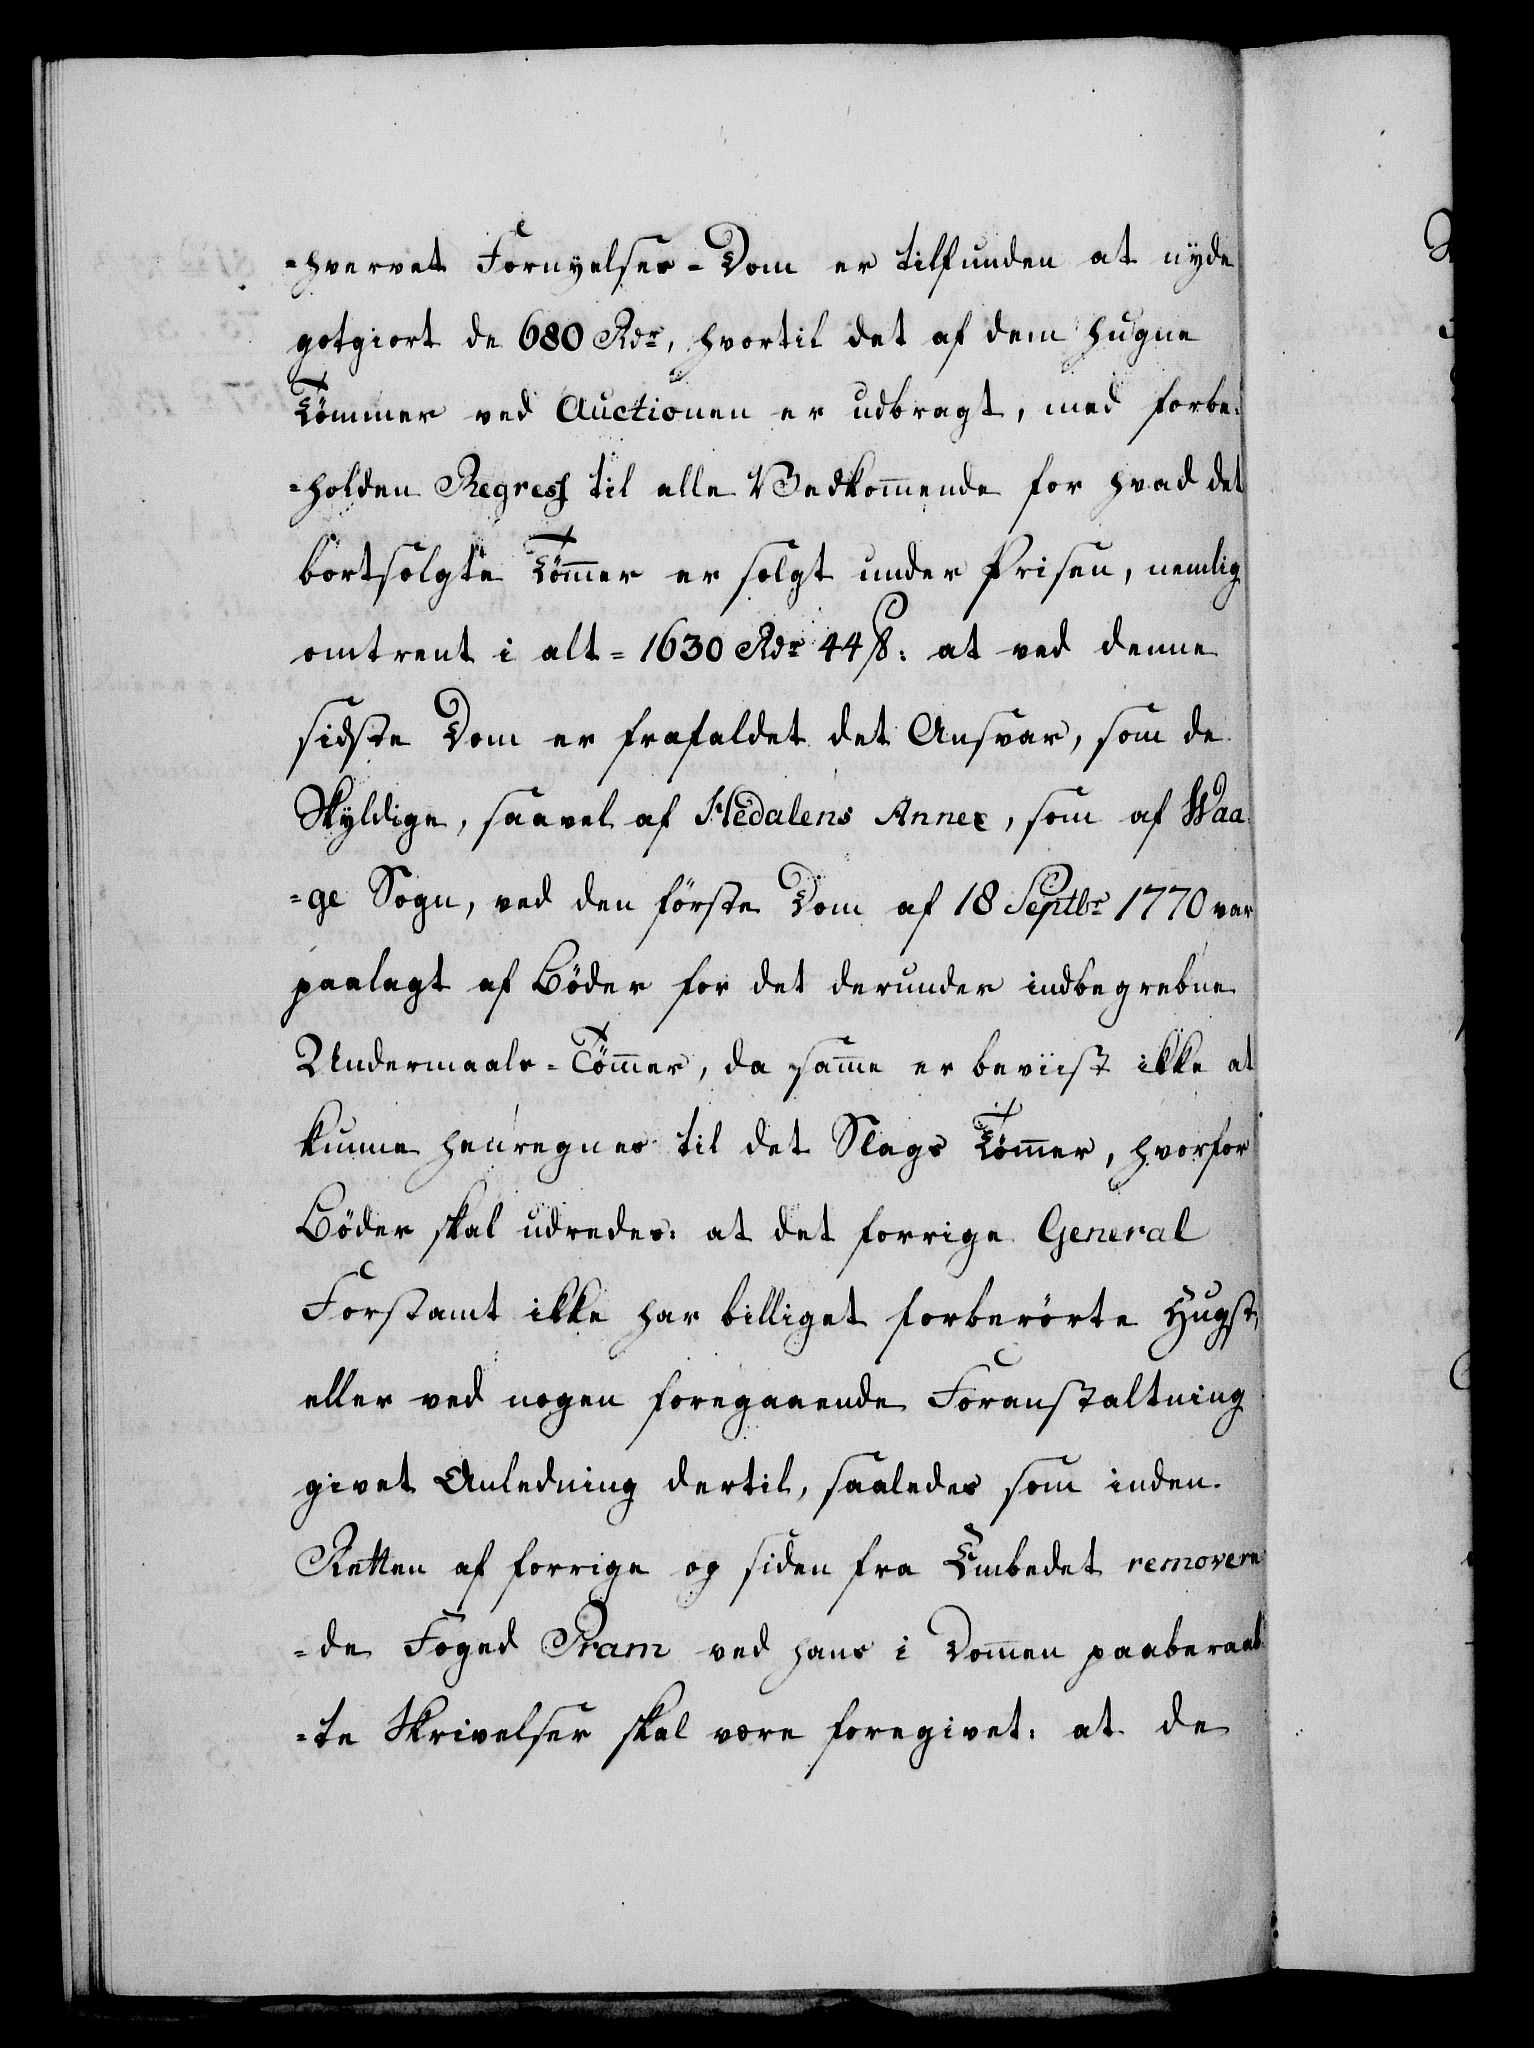 =hvervet Fornyelses-Dom er tilfunden at nyde
gotgiort de 680 Rdr, hvortil det af dem hugne
Tömmer ved Auctionen er udbragt, med forbe-
=holden Regress til alle Vedkom̄ende for hvad det
bortsolgte Töm̄er er solgt under Prisen, nemlig
omtrent i alt = 1630 Rdr 44 ß: at ved denne
sidste Dom er frafaldet det Ansvar, som de
Skyldige, saavel af Hedalens Annex, som af Waa-
=ge Sogn, ved den förste Dom af 18 Septbr 1770 var
paalagt af Böder for det derunder indbegrebne
Undermaals-Töm̄er, da sam̄e er beviist ikke at
kunne henregnes til det Slags Töm̄er, hvorfor
Böder skal udredes: at det forrige General
Forstamt ikke har billiget forberörte Hugst,
eller ved nogen foregaaende Foranstaltning
givet Anledning dertil, saaledes som inden
Retten af forrige og siden fra Embedet removere
=de Foged Pram ved hans i Dom̄en paaberaab
=te Skrivelser skal være foregivet: at de